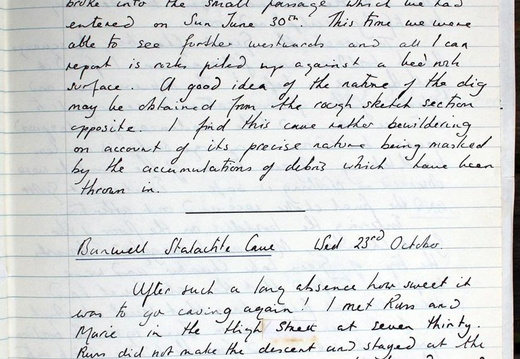 broke into the small passage which we had
entered on Sun June 30th. This time we were
able to see further westwards and all I can
report is rocks piled up against a bed rock
surface. A good idea of the nature of the dig
may be obtained from the rough sketch section
opposite. I find this cave rather bewildering
on account of its precise nature being masked
by the accumulations of debris which have been
thrown in.
Banwell Stalactite Cave Wed 23rd October.
After such a long absence how sweet it
was to go caving again! I met Russ and
Marie in the High Street at seven thirty.
Russ did not make the descent and stayed at the